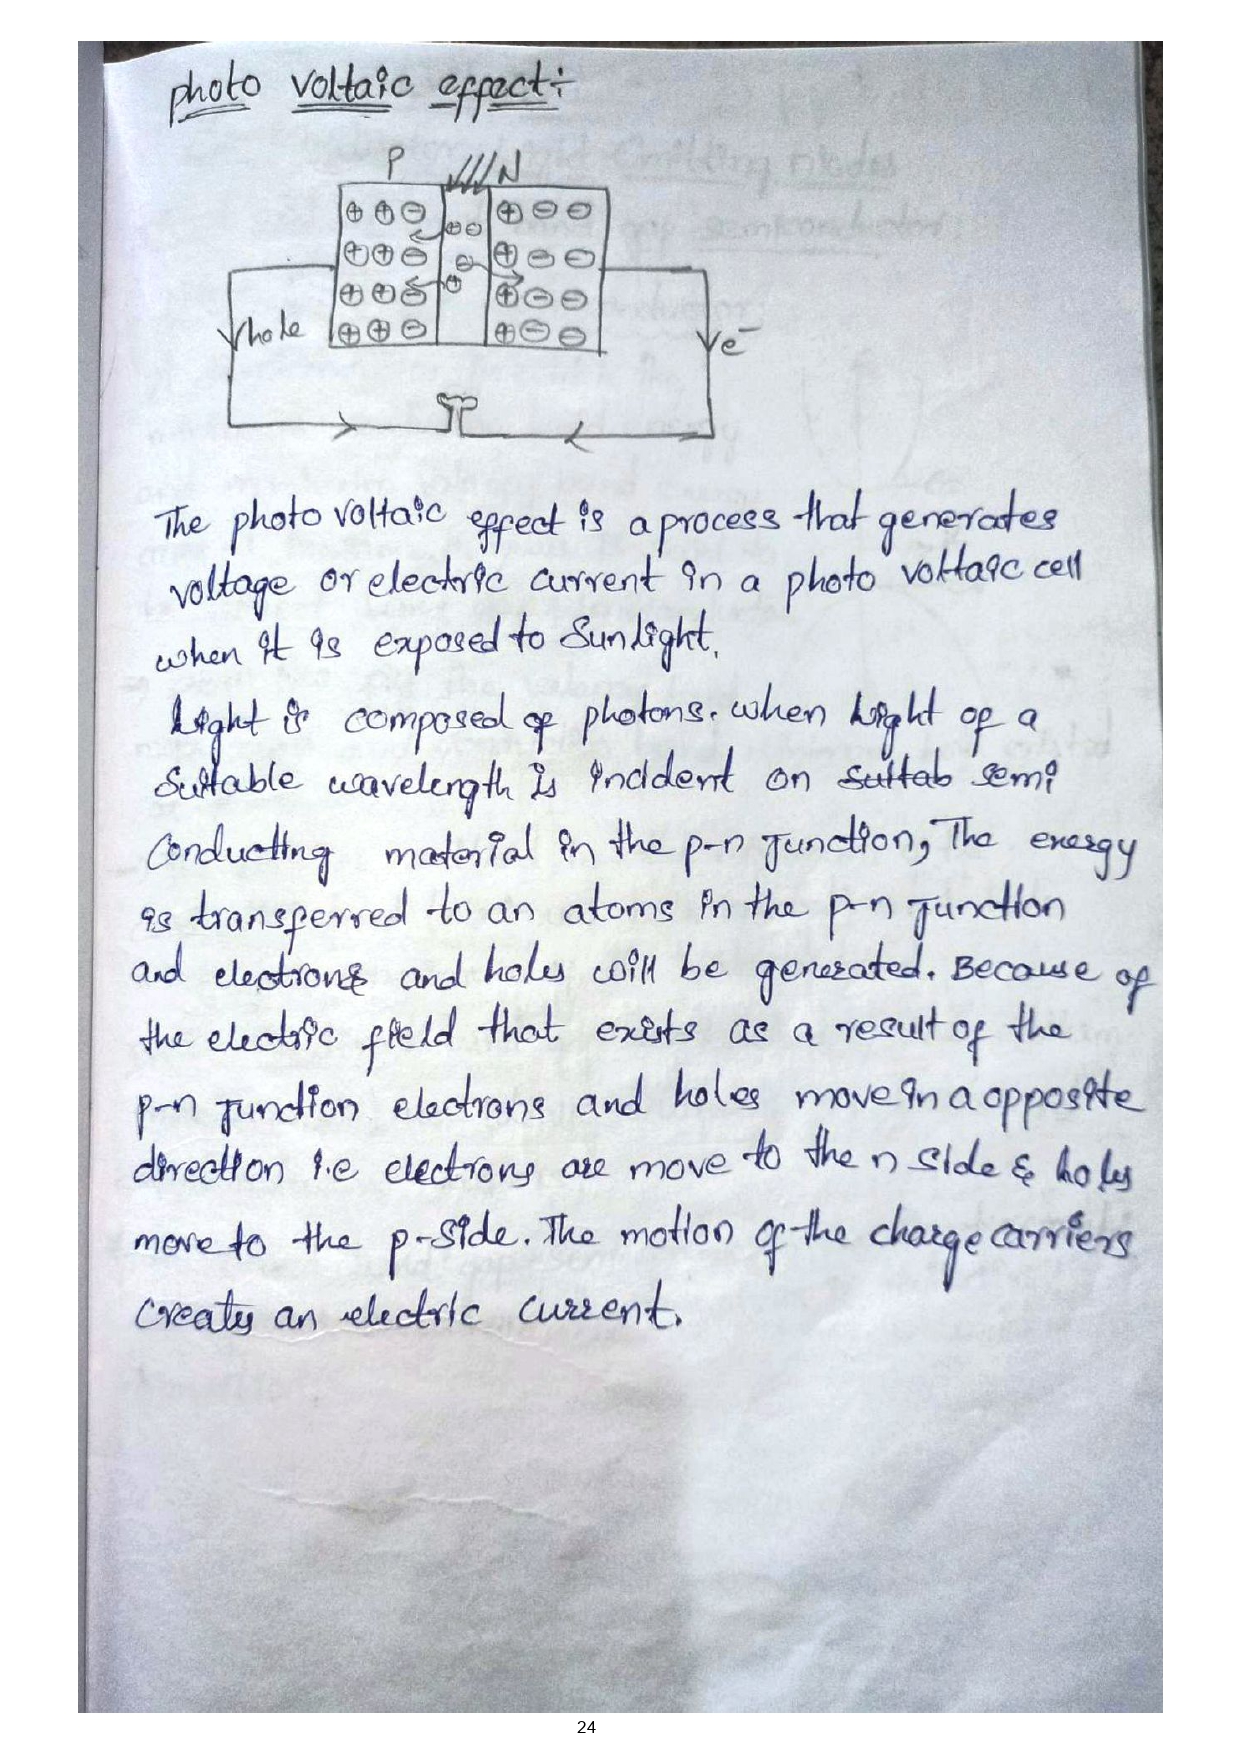 photo voltaic effect:-
P N
hole
e⁻
The photo voltaic effect is a process that generates
voltage or electric current in a photo voltaic cell
when it is exposed to Sunlight.
Light is composed of photons. when Light of a
Suitable wavelength is incident on suitab semi
conducting material in the p-n junction, The energy
is transferred to an atoms in the p-n junction
and electrons and holes will be generated. Because of
the electric field that exists as a result of the
p-n junction electrons and holes move in a opposite
direction i.e electrons are move to the n side & holes
move to the p-side. The motion of the charge carriers
creates an electric current.
24